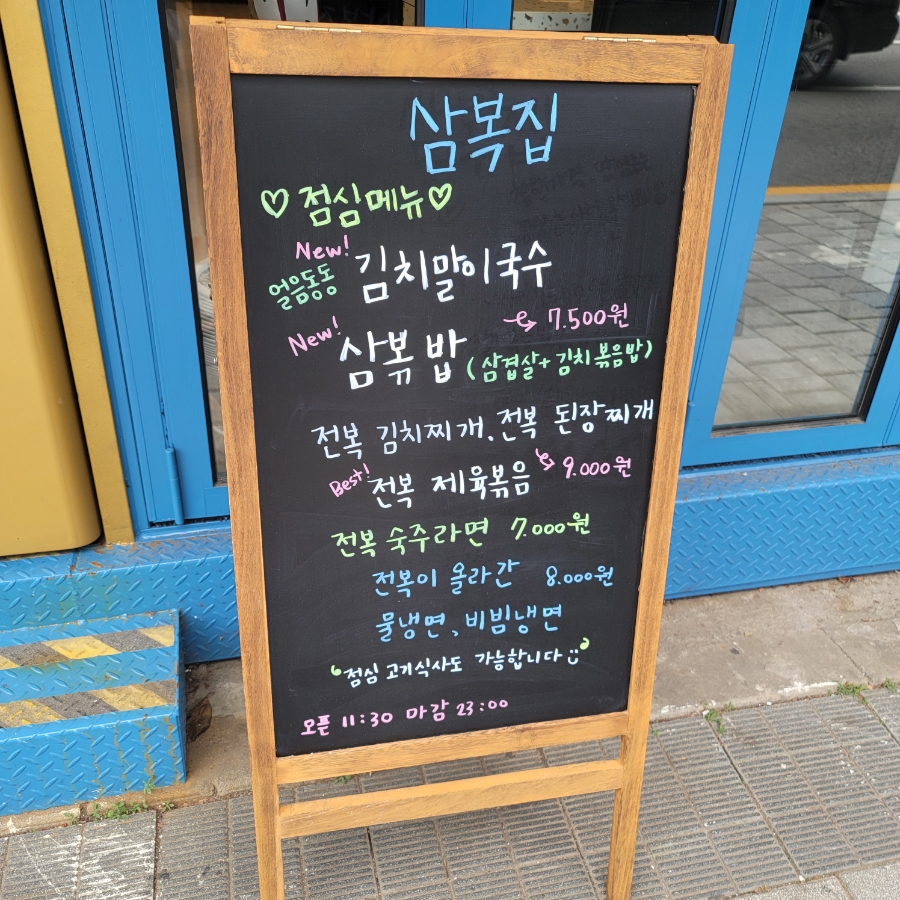 삼복집
♡점심메뉴♡
New!
얼음동동 김치말이국수
7.500원
New!
삼볶밥 (삼겹살+김치볶음밥)
전복 김치찌개, 전복 된장찌개
9.000원
Best! 전복 제육볶음
전복 숙주라면 7.000원
전복이 올라간 8.000원
물냉면, 비빔냉면
"점심 고기식사도 가능합니다"
오픈 11:30 마감 23:00